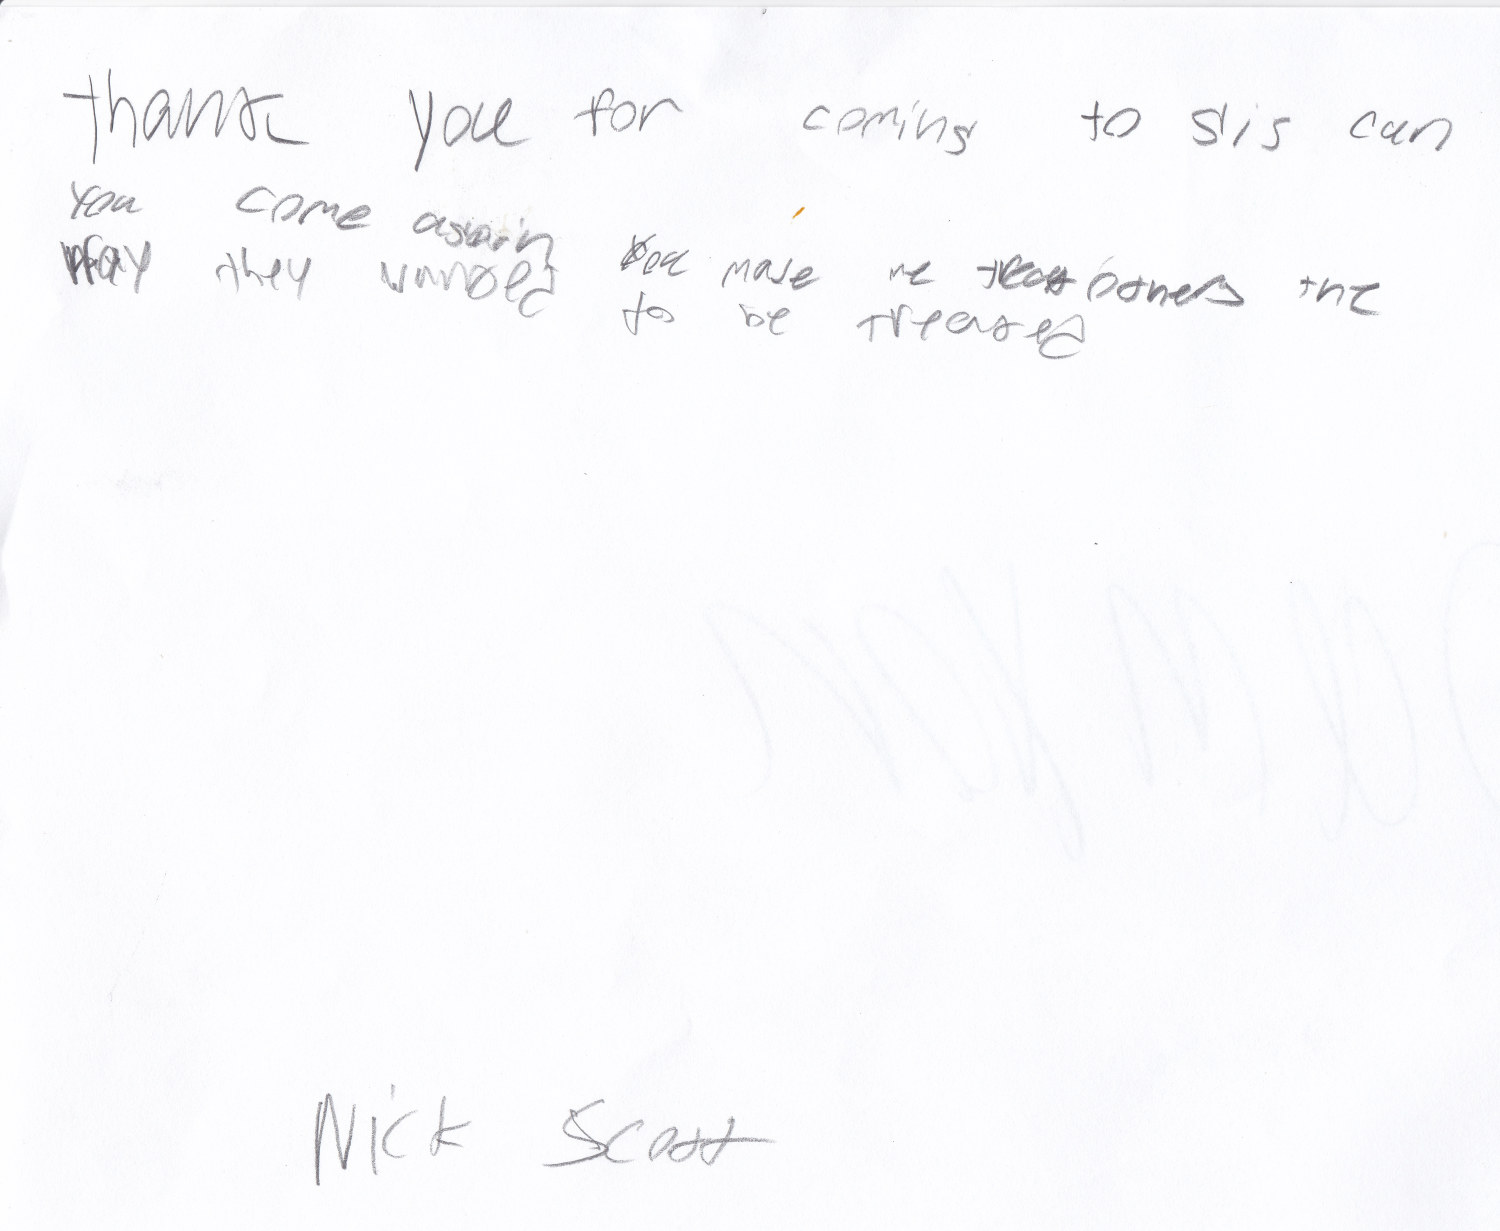 thank you for coming to sis can
you come again You make me treat others the
way they wanted to be treated
Nick Scott